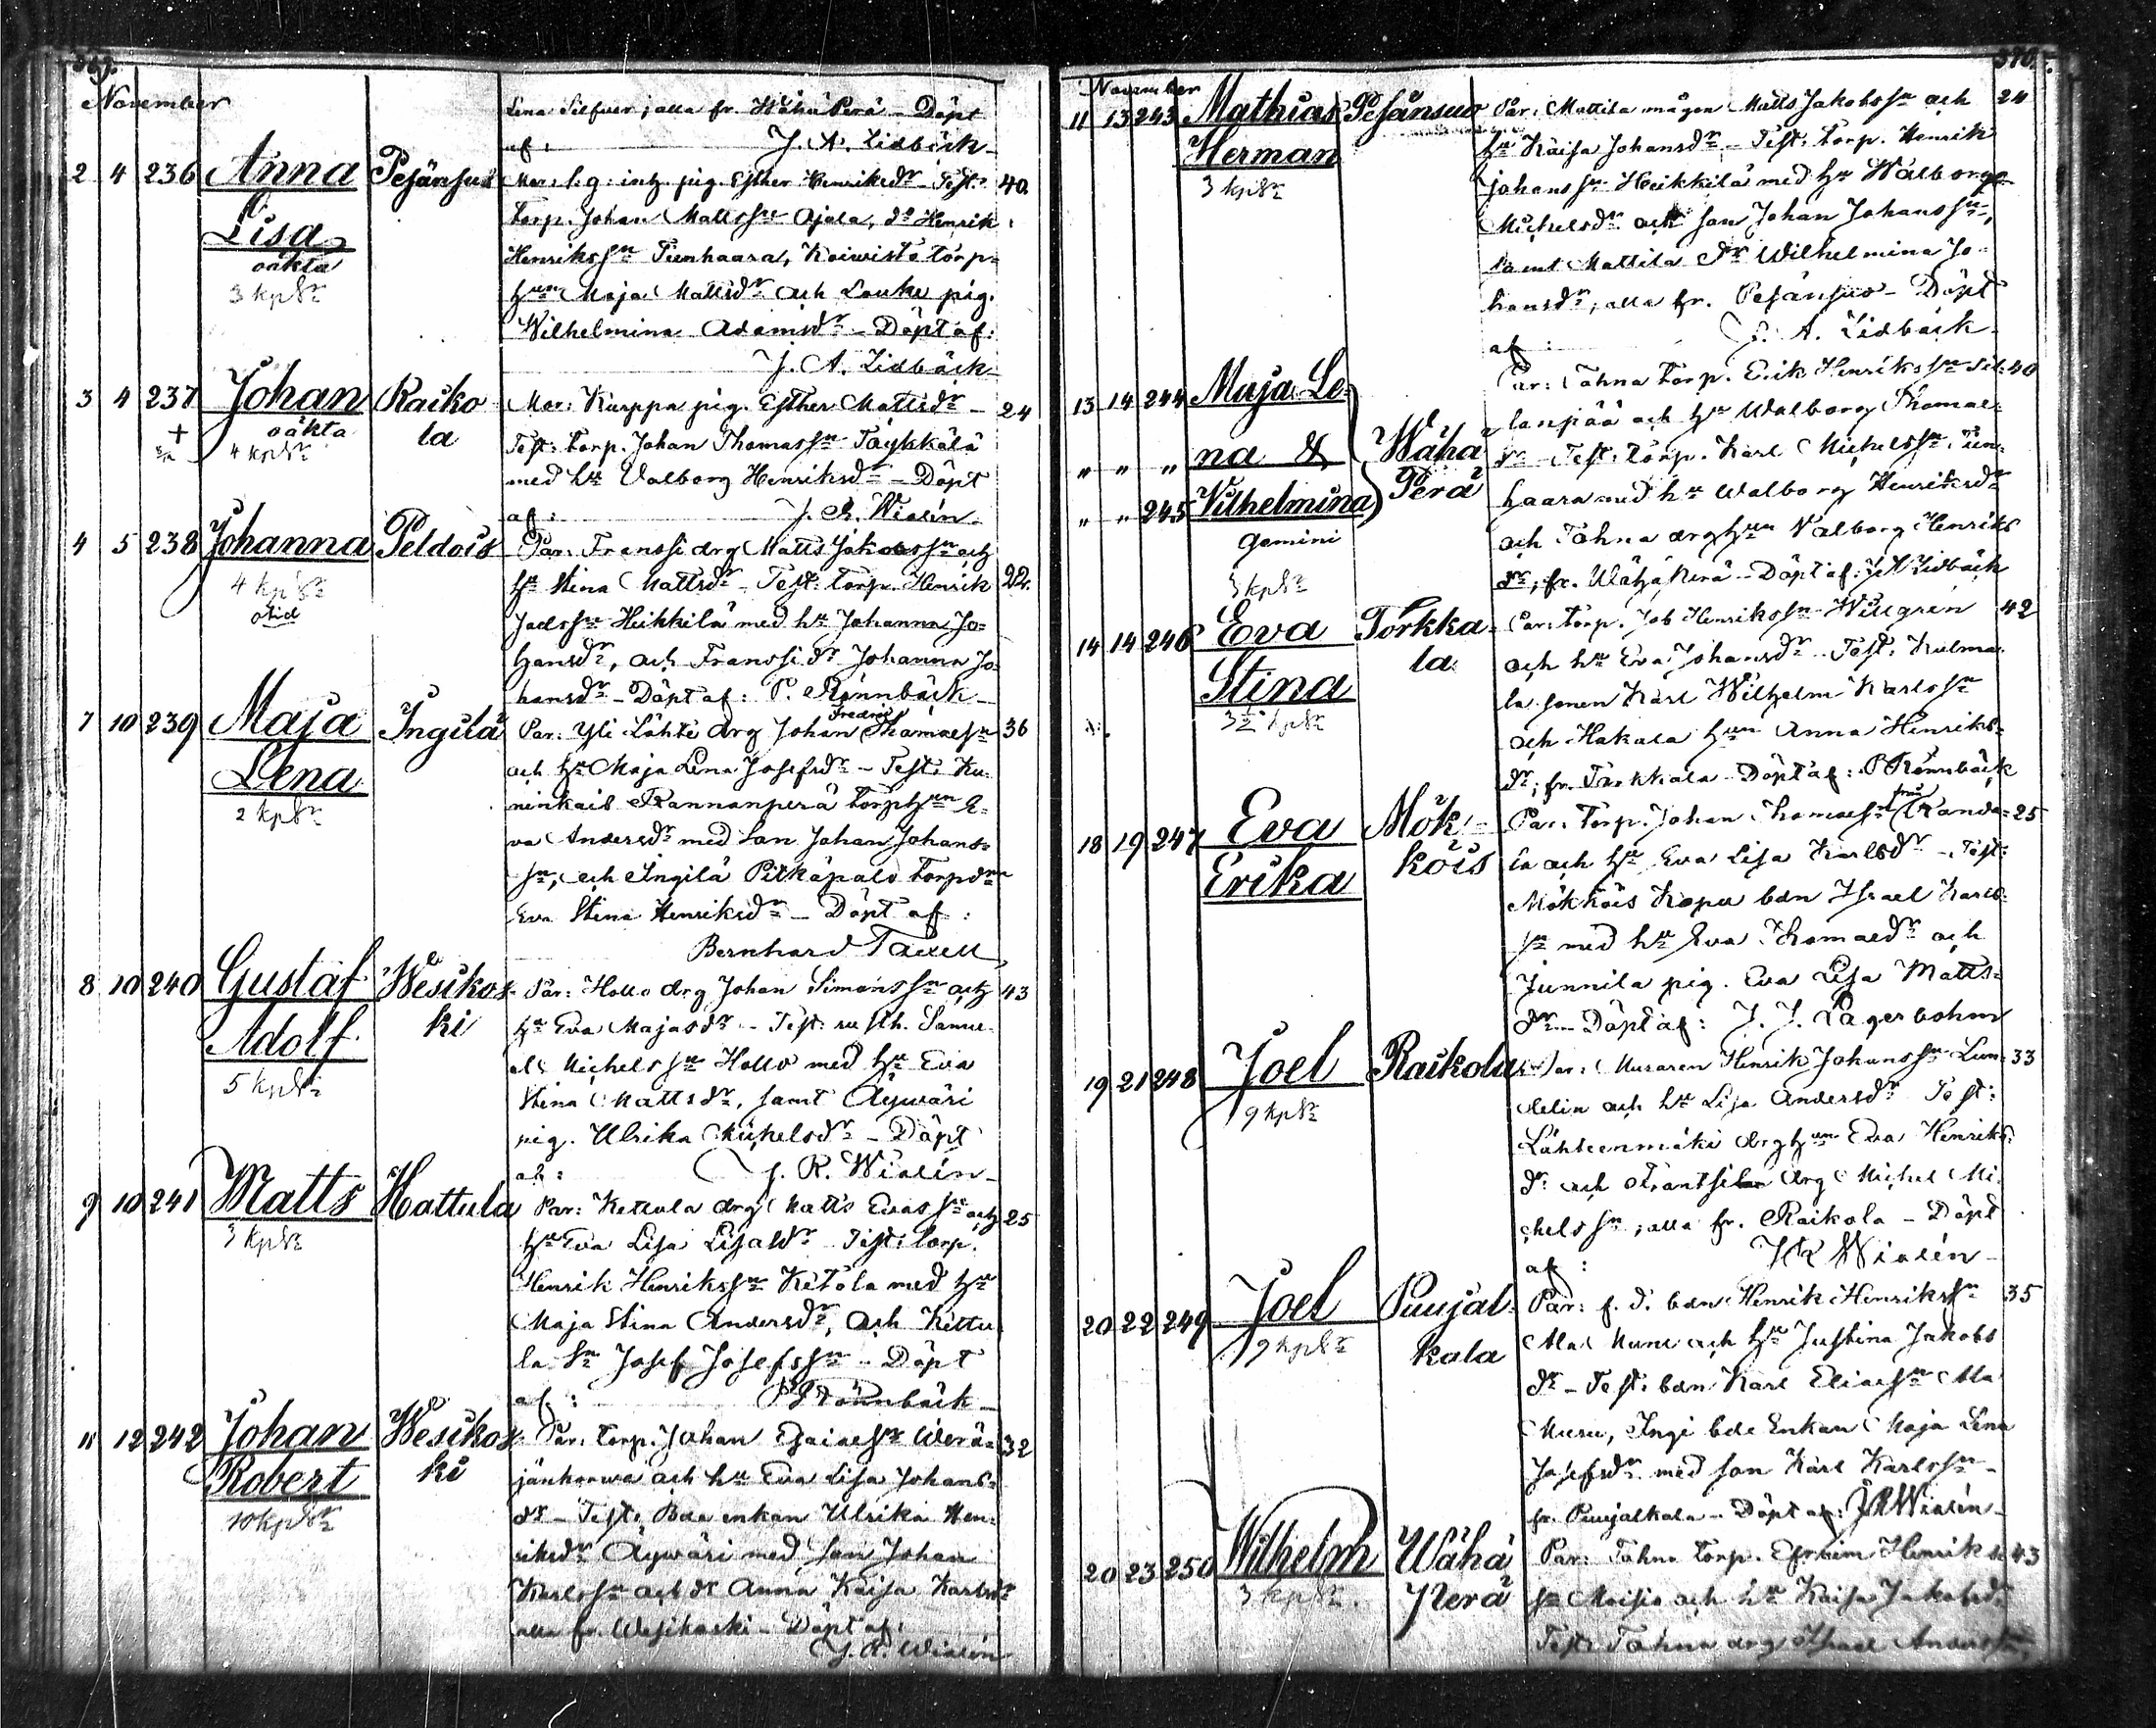 November
Lena Silfver; alla fr. Wähä Perä - Döpt
af: J. A. Lidbäck
2 4 236 Anna Pesänsuo Mor: s. g: inh. pig. Esther Henriksdr - Test: 40.
Lisa torp. Johan Mattssn Ajala, do Henrik
oäkta Henrikssn Tienhaara, Koiwisto torp-
3 kpSr hun Maja Mattsdr och Louko pig.
Wilhelmina Adamsdr - Döpt af:
J. A. Lidbäck
3 4 237 Johan Raiko Mor: Kurppa pig. Esther Mattsdr - 24
+ oäkta la Test: torp. Johan Thomassn Töykkälä
4 kpSr med hu Valborg Henriksdr - Döpt
af: J. R. Wialén
4 5 238 Johanna Peldois Par: Franssi drg Matts Jakobssn och
4 kpSr hu Stina Mattsdr - Test: torp. Henrik 22.
Jadssn Heikkilä med hu Johanna Jo-
hansdr, och Franssi dr Johanna Jo-
hansdr - Döpt af: P. Rönnbäck
7 10 239 Maja Ingilä Par: Yli Lähte drg Johan Fredric Thomassn 36
Lena och hu Maja Lena Josefsdr - Test: Ku-
2 kpSr ninkais Rannanperä torphun E-
va Andersdr med son Johan Johans-
sn, och Ingilä Pitkäpalo torpdrn
Eva Stina Henriksdr - Döpt af:
Bernhard Taxell
8 10 240 Gustaf Wesikos- Par: Hollo drg Johan Simonssn och 43
Adolf ki hu Eva Majasdr - Test: rusth. Samu-
5 kpSr el Michelssn Hollo med hu Eva
Stina Mattsdr, samt Äywäri
pig. Ulrika Michelsdr - Döpt
af: J. R. Wialén
9 10 241 Matts Hattula Par: Kettula drg Matts Evassn och 25
3 kpSr hu Eva Lisa Lisasdr Test: torp.
Henrik Henrikssn Ketola med hu
Maja Stina Andersdr, och Kettu
la sn Josef Josefssn - Döpt
af: P Rönnbäck
11 12 242 Johan Wesikos- Par: torp. Johan Esaiaesn Werä- 32
Robert ki jänkorwa och hu Eva Lisa Johans-
10 kpSr dr - Test: Bda enkan Ulrika Hen-
riksdr Äywäri med son Johan
Karlssn och dr Anna Kaisa Karlsdr
alla fr. Wesikoski - Döpt af:
J. R. Wialén
370.
November
11 13 243 Mathias Pesänsuo Par: Mattila mågen Matts Jakobssn och 24
Herman hu Kaisa Johansdr - Test: torp. Henrik
3 kpSr Johanssn Heikkilä med hu Walborg
Michelsdr och son Johan Johanssn,
samt Mattila dr Wilhelmina Jo-
hansdr; alla fr. Pesänsuo - Döpt
af: J. A. Lidbäck
13 14 244 Maja Le- Par: Tähnä torp. Erik Henrikssn Sil- 40
lanpää och hu Walborg Thomae-
" " " na & Wähä dr - Test: torp. Karl Michelssn Tien-
" " 245 Vilhelmina Perä haara med hu Walborg Henriksdr
Gemini och Tähnä drghun Valborg Henriks
3 kpSr dr; fr. Wähä Perä - Döpt af: J A Lidbäck
14 14 246 Eva Torkka- Par: torp. Job Henrikssn Willgrén 42
Stina la och hu Eva Johansdr - Test: Kulma-
3½ kpSr la sonen Karl Wilhelm Karlssn
och Hakala hun Anna Henriks-
dr; fr. Torkkala - Döpt af: P Rönnbäck
18 19 247 Eva Mök- Par: torp. Johan Thomaesn från Randa- 25
Erika köis la och hu Eva Lisa Karlsdr - Test:
Mökköis Kopu bdn Israel Karls-
sn med hu Eva Thomaedr och
Junnila pig. Eva Lisa Matts-
dr - Döpt af: J. J. Lagerbohm
19 21 248 Joel Raikola Par: Muraren Henrik Johanssn Lun- 33
9 kpSr delin och hu Lisa Andersdr Test:
Lähteenmäki drghun Eva Henriks-
dr och Frantsila drg Michel Mi-
chelssn; alla fr. Raikola - Döpt
af: J R Wialén
20 22 249 Joel Puujal- Par: f. d. bdn Henrik Henrikssn 35
9 kpSr kala Ala Muru och hu Justina Jakobs
dr - Test: bdn Karl Eliaesn Ala
Muru, Ingi bde Enkan Maja Lena
Josefsdr med son Karl Karlssn -
fr. Puujalkala - Döpt af: J R Wialén
20 23 250 Wilhelm Wähä Par: Tähnä torp. Efraim Henriks- 43
3 kpSr. Perä sn Moisio och hu Kaisa Jakobsdr
Test: Tähnä drg Israel Anderssn,